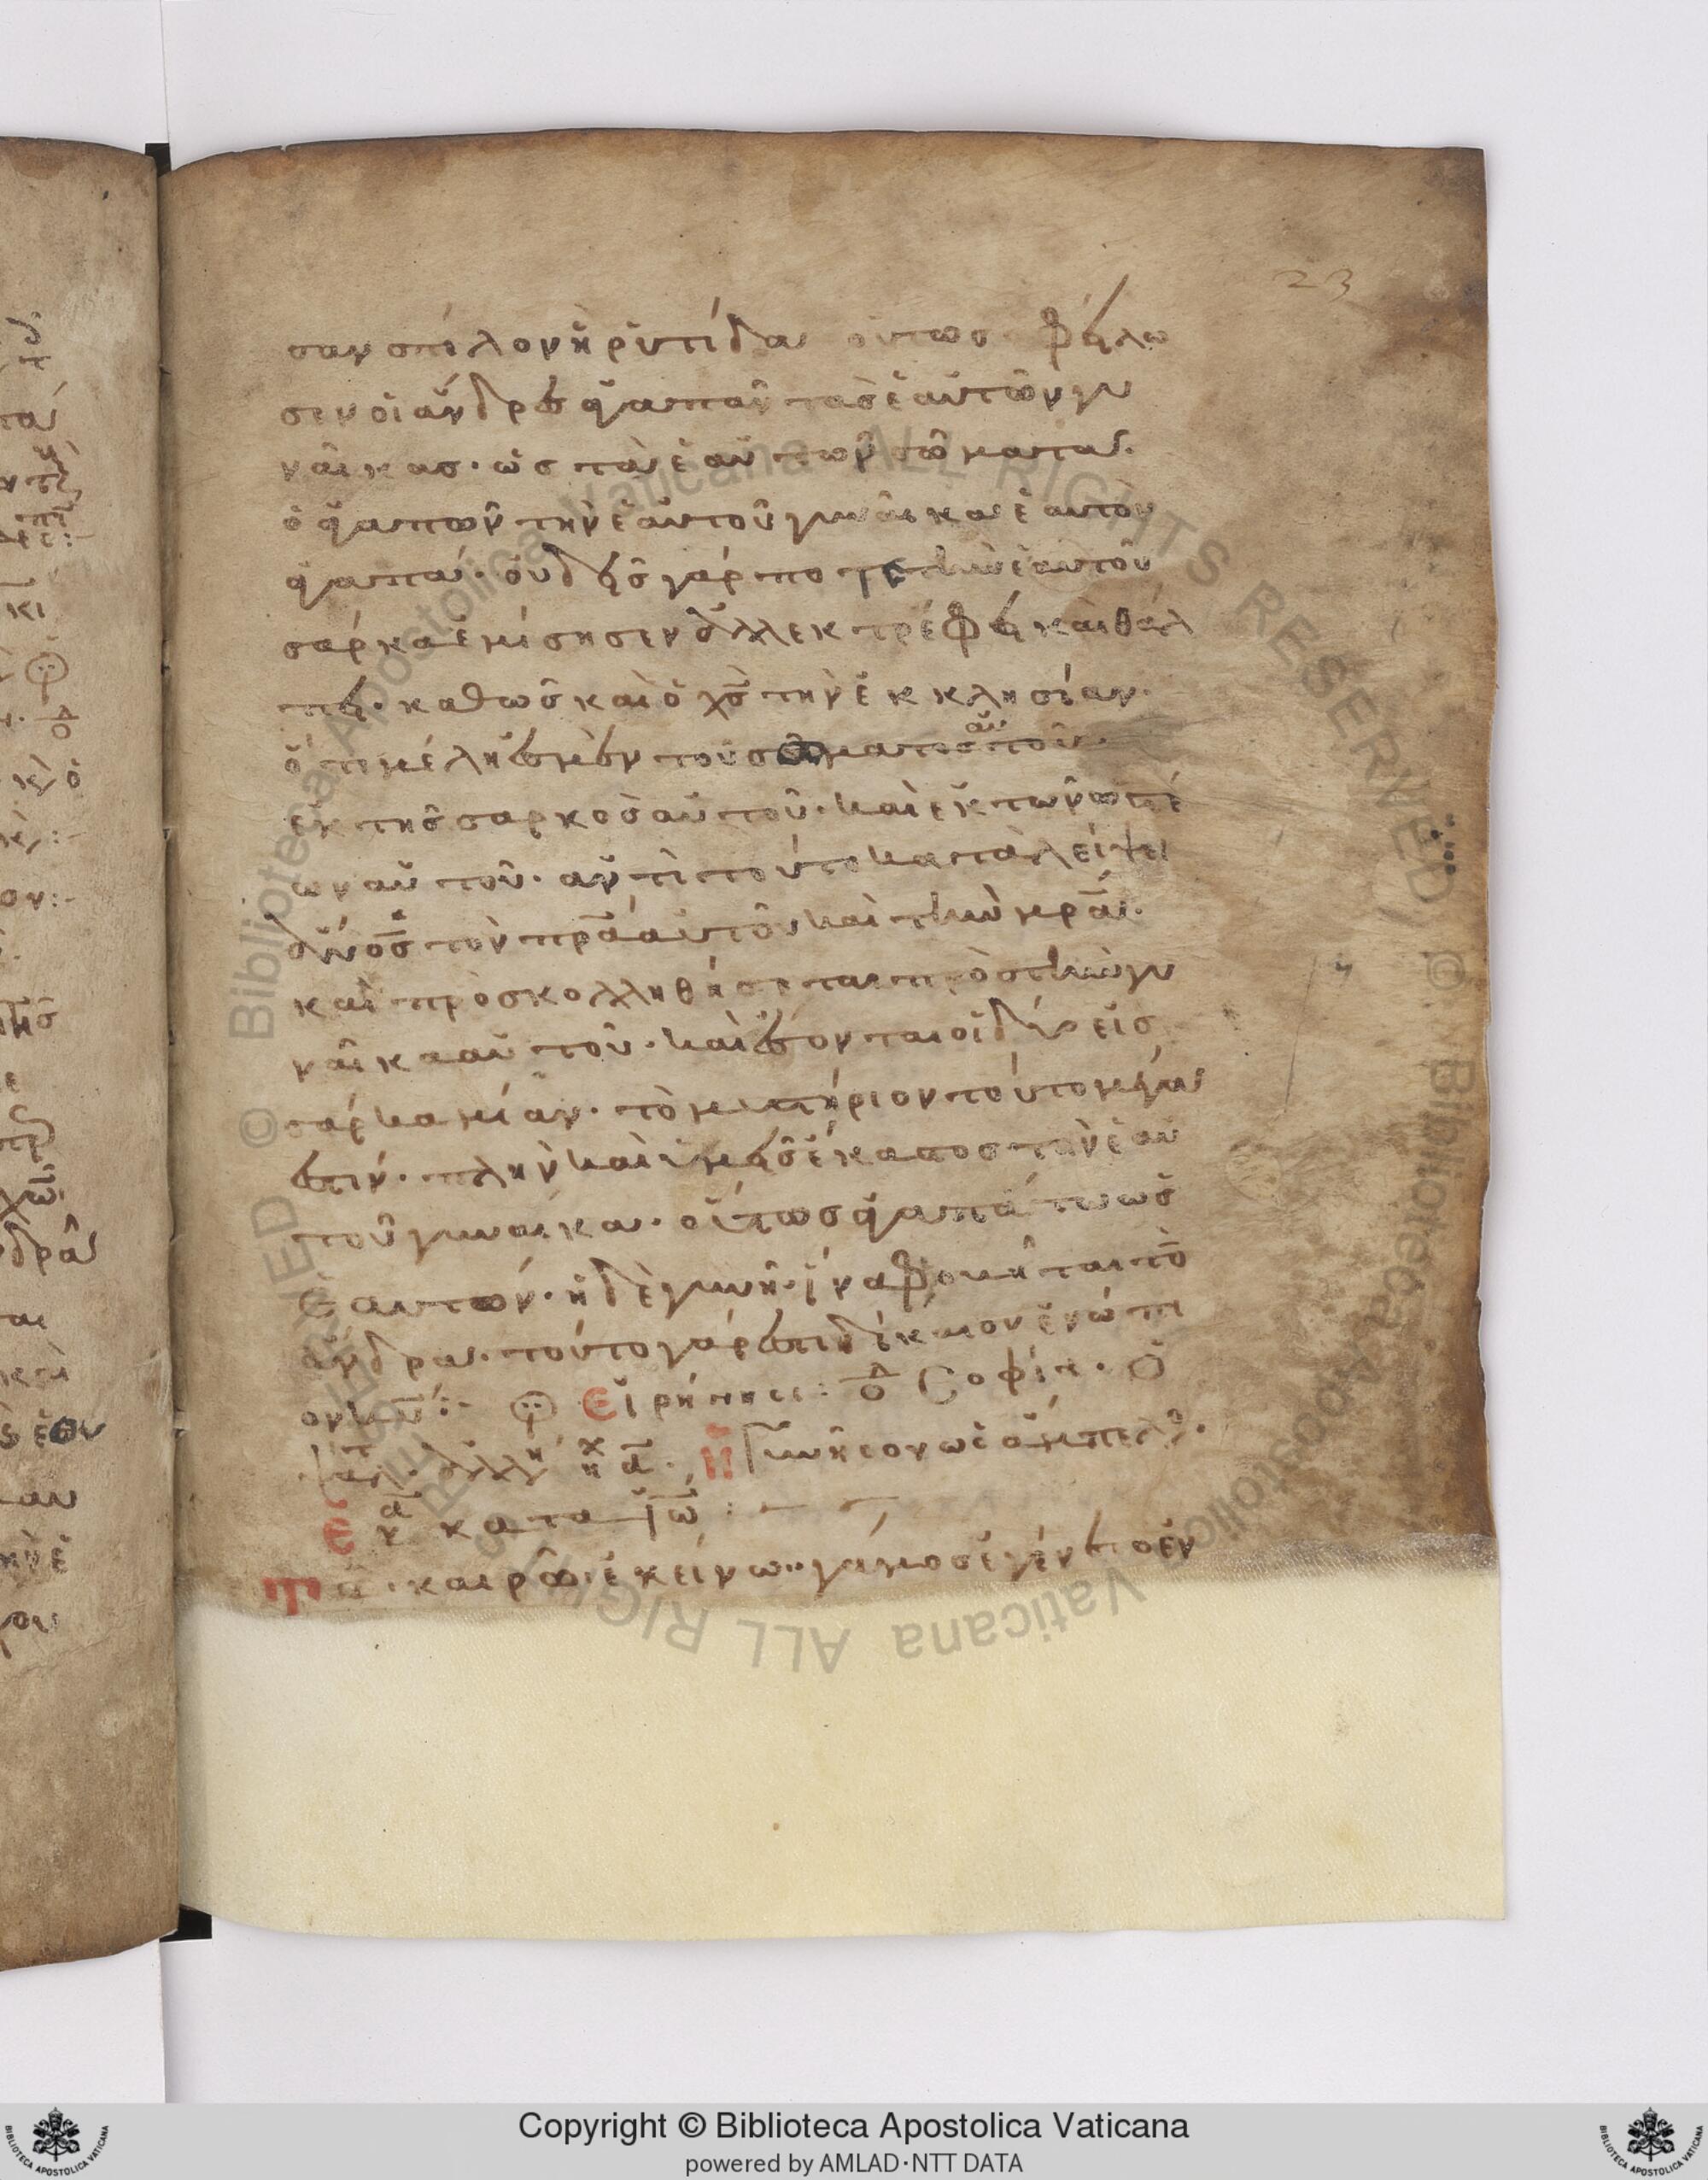 23
σαν σπίλον ἢ ῥυτίδα οὕτως ὀφείλω
σιν οἱ ἄνδρες ἀγαπᾶν τὰς ἑαυτῶν γυ
ναῖκας· ὡς τὰ ἑαυτῶν σώματα·
ὁ ἀγαπῶν τὴν ἑαυτοῦ γυναῖκα ἑαυτὸν
ἀγαπᾶ· οὐδεὶς γάρ ποτε τὴν ἑαυτοῦ
σάρκα ἐμίσησεν ἀλλ' ἐκτρέφει καὶ θάλ
πει· καθὼς καὶ ὁ χς τὴν ἐκκλησίαν·
ὅτι μέλη ἐσμὲν τοῦ σώματος αὐτοῦ·
ἐκ τῆς σαρκὸς αὐτοῦ· καὶ ἐκ τῶν ὀστέ
ων αὐτοῦ· ἀντὶ τούτο καταλείψει
ἄνος τὸν πρα αὐτοῦ καὶ τὴν μρα·
καὶ προσκολληθήσεται πρὸς τὴν γυ
ναῖκα αὐτοῦ· καὶ ἔσονται οἱ δύο εἰς
σάρκα μίαν· τὸ μυστήριον τοῦτο μέγα
ἐστιν· πλὴν καὶ ὑμεῖς ἕκαστος τὴν ἑαυ
τοῦ γυναίκα· οὕτως ἀγαπάτω ὡς
ἑαυτὸν· ἡ δὲ γυνὴ· ἵνα φοβῆται τὸ
ἄνδρα· τοῦτο γάρ ἐστι δίκαιον ἐνώπι
ον κυ:- Εἰρήνη σι: Σοφία· Ὁ
ἡ γυνή σου ὡς ἄμπελ·
κατα ϊω:-
Τῶ· καιρῶ· ἐκείνω·· γάμος ἐγένετο ἐν
Copyright © Biblioteca Apostolica Vaticana
powered by AMLAD·NTT DATA